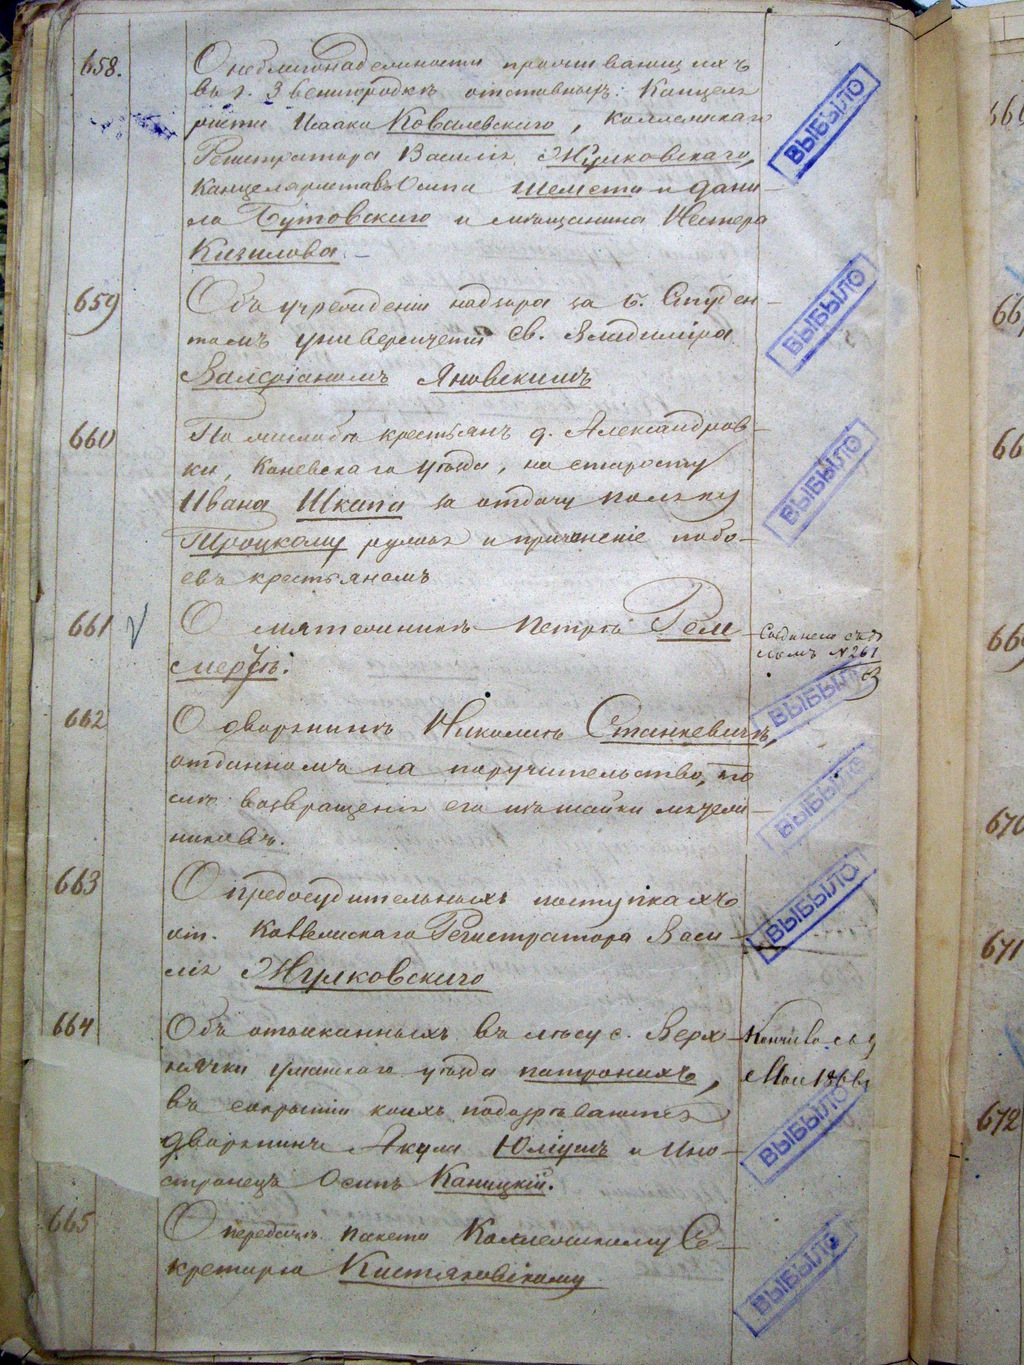 658.
О неблагонадежности проживающихъ
въ г. Звенигородкѣ отставныхъ: Канцеля
риста Исаака Ковалевскаго, Коллежскаго
Регистратора Василія Жулковскаго,
Канцеляристовъ Осипа Шемета и Дани-
ла Бутовскаго и мѣщанина Нестера
Кизилова.-
ВЫБЫЛО
659
Объ учрежденіи надзора за б. Студен-
томъ университета Св. Владиміра
Валеріаномъ Яновскимъ
ВЫБЫЛО
660
По жалобѣ крестьянъ д. Александров-
ки, Каневскаго уѣзда, на старосту
Ивана Шкапа за отдачу поляку
Троцкому ружья и причиненіе побо-
евъ крестьянамъ
ВЫБЫЛО
661
О мятежникѣ Петрѣ Гем
мерѣ.
Соединено съ дѣ
ломъ №261
ВЫБЫЛО
662
О дворянинѣ Николаѣ Станкевичѣ,
отданномъ на поручительство, по
слѣ возвращенія его изъ шайки мятеж-
никовъ.
ВЫБЫЛО
663
О предосудительныхъ поступкахъ
от. Коллежскаго Регистратора Васи-
лія Жулковскаго
ВЫБЫЛО
664
Объ отысканныхъ въ лѣсу с. Верх-
нячки Уманскаго уѣзда патронахъ,
въ сокрытіи коихъ подозрѣваются
дворянинъ Якутъ и Ино-
странецъ Осипъ Каницкій.
Кончено
Мая
ВЫБЫЛО
665
О передачѣ пакета Коллежскому Се-
кретарю Кистяковскому
ВЫБЫЛО
66
670
671
672